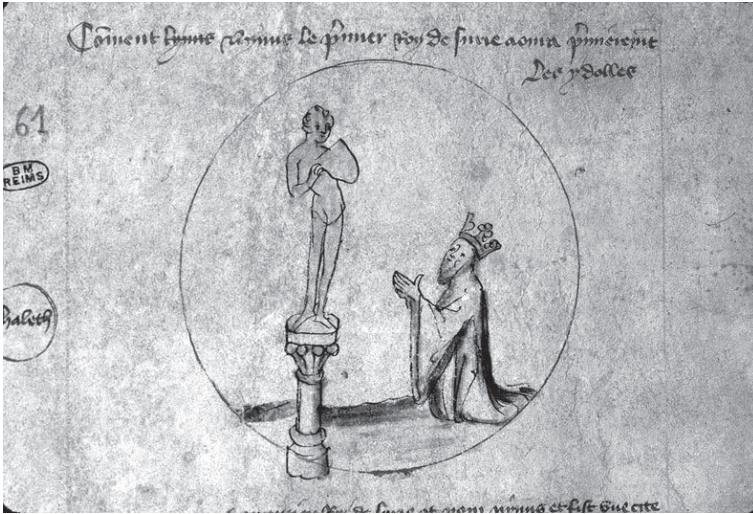 Co᷉ment Nynus le p᷉mier roy de surie aoura p᷉mierem᷉t
Les ydolles
61
BM
REIMS
haleth
de surie ot nom nynus et fist vne cite